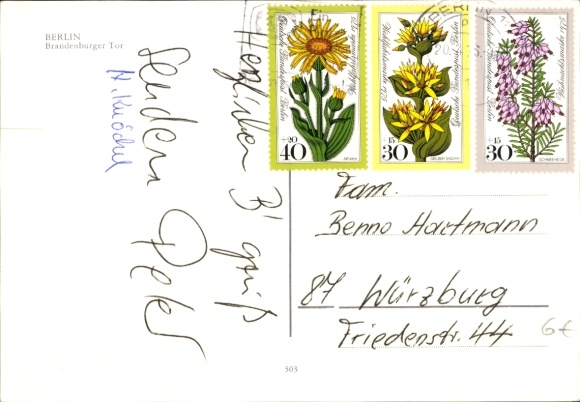 BERLIN
Brandenburger Tor
Herzlichen B' gruß
senden
Peter
N. Knöchel
BERLIN
Deutsche Bundespost Berlin
Wohlfahrtsmarke 1975
+20
40
ARNIKA
Wohlfahrtsmarke 1975
Deutsche Bundespost Berlin
+15
30
GELBER ENZIAN
Deutsche Bundespost Berlin
Weihnachtsmarke 1975
+15
30
SCHNEEHEIDE
Fam.
Benno Hartmann
87 Würzburg
Friedenstr. 44
6€
303